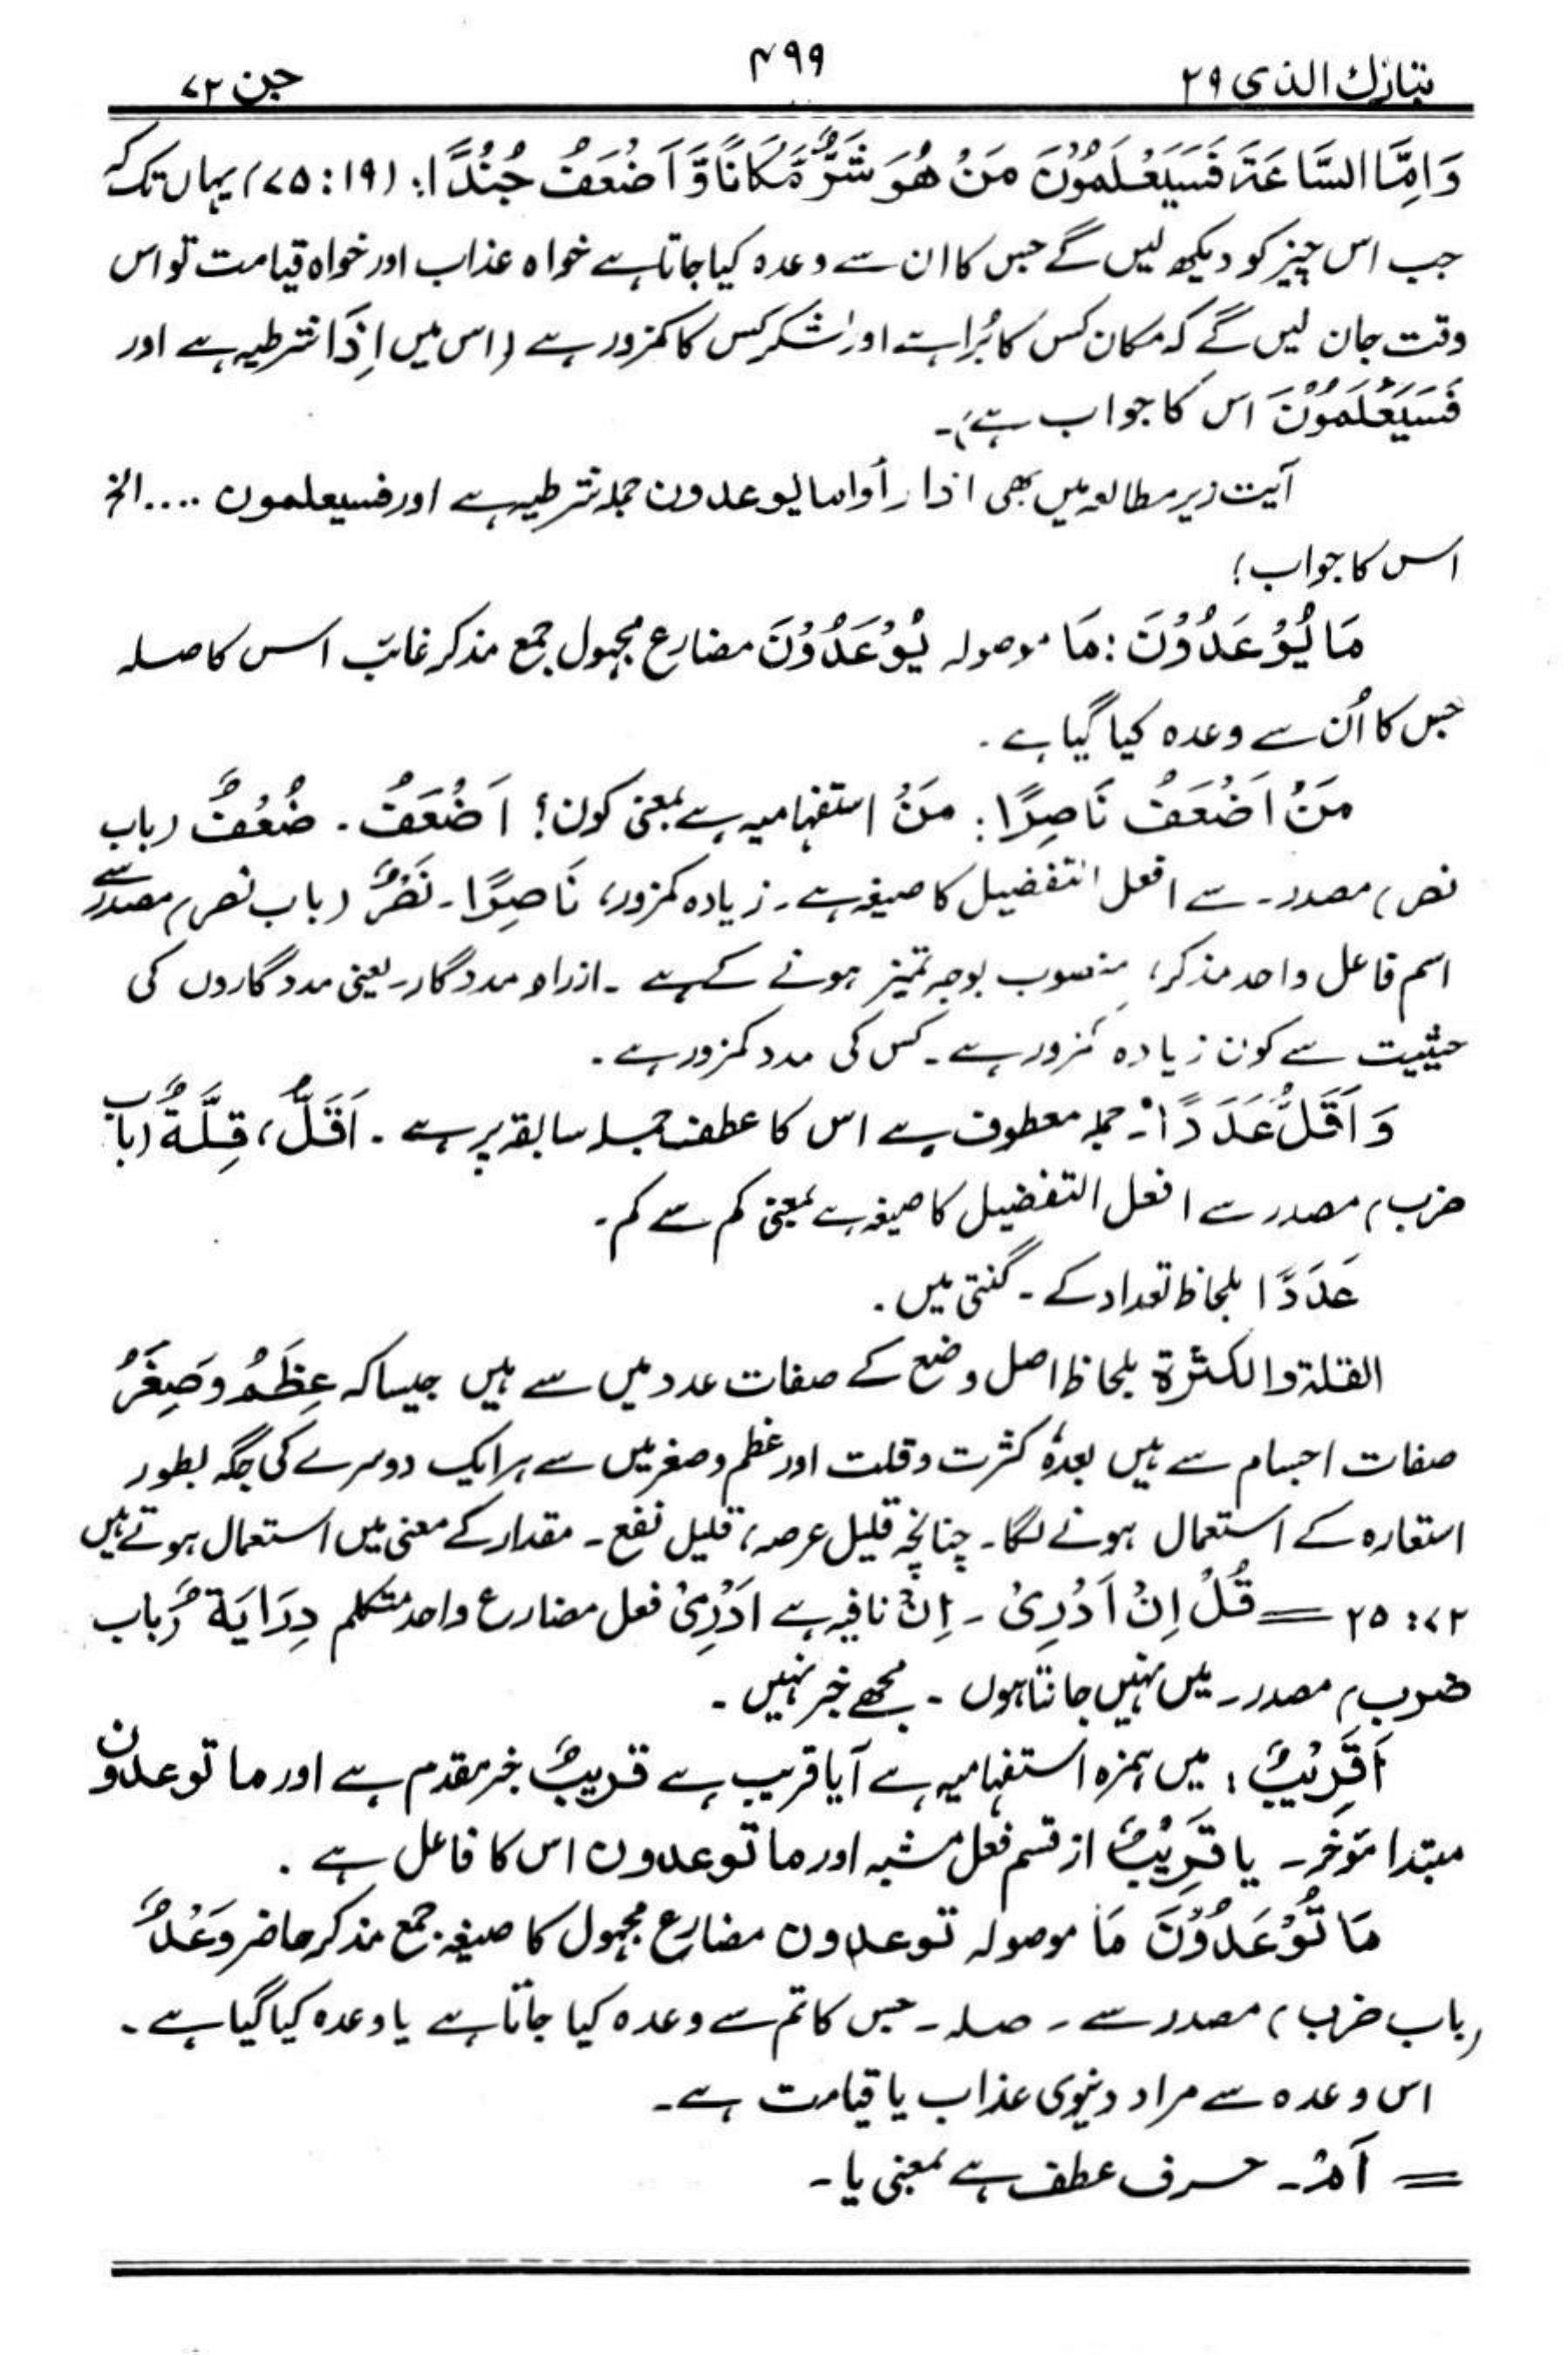 تبارك الذی ۲۹
۴۹۹
جن ۷۲
وَاِمَّا السَّاعَةَ فَسَيَعْلَمُوْنَ مَنْ هُوَ شَرٌّ مَّكَانًا وَّ اَضْعَفُ جُنْدًا: (۷۵:۱۹) یہاں تک کہ
جب اس چیز کو دیکھ لیں گے جس کا ان سے وعدہ کیا جاتا ہے خواہ عذاب اور خواہ قیامت تو اس
وقت جان لیں گے کہ مکان کس کا بُرا ہے اور لشکر کس کا کمزور ہے (اس میں اِذَا شرطیہ ہے اور
فَسَيَعْلَمُوْنَ اس کا جواب ہے)۔
آیت زیر مطالعہ میں بھی اذا رأوا ما یوعدون جملہ شرطیہ ہے اور فسیعلمون .... الخ
اس کا جواب؛
مَا يُوْعَدُوْنَ: مَا موصولہ يُوْعَدُوْنَ مضارع مجہول جمع مذکر غائب اس کا صلہ
جس کا اُن سے وعدہ کیا گیا ہے۔
مَنْ اَضْعَفُ نَاصِرًا: مَنْ استفہامیہ ہے بمعنی کون؟ اَضْعَفُ۔ ضُعْفٌ (باب
نصر) مصدر۔ سے افعل التفضیل کا صیغہ ہے۔ زیادہ کمزور، نَاصِرًا۔ نَصْرٌ (باب نصر) مصدر سے
اسم فاعل واحد مذکر؛ منصوب بوجہ تمیز ہونے کے ہے۔ ازراہِ مددگار۔ یعنی مددگاروں کی
حیثیت سے کون زیادہ کمزور ہے۔ کس کی مدد کمزور ہے۔
وَ اَقَلُّ عَدَدًا:۔ جملہ معطوف ہے اس کا عطف جملہ سابقہ پر ہے۔ اَقَلُّ، قِلَّةٌ (باب
ضرب) مصدر سے افعل التفضیل کا صیغہ ہے بمعنی کم سے کم۔
عَدَدًا بلحاظ تعداد کے۔ گنتی میں۔
القلة والکثرة بلحاظ اصل وضع کے صفات عدد میں سے ہیں جیسا کہ عِظَمُ وَصِغَرُ
صفات اجسام سے ہیں بعدہٗ کثرت وقلت اور عظم وصغر میں سے ہر ایک دوسرے کی جگہ بطور
استعارہ کے استعمال ہونے لگا۔ چنانچہ قلیل عرصہ، قلیل نفع۔ مقدار کے معنی میں استعمال ہوتے ہیں
۷۲: ۲۵ = قُلْ اِنْ اَدْرِىْ۔ اِنْ نافیہ ہے اَدْرِىْ فعل مضارع واحد متکلم دِرَايَةٌ (باب
ضرب) مصدر۔ میں نہیں جانتا ہوں۔ مجھے خبر نہیں۔
اَقَرِيْبٌ: میں ہمزہ استفہامیہ ہے آیا قریب ہے قریبٌ خبر مقدم ہے اور ما توعدون
مبتدا مؤخر۔ یا قَرِيْبٌ از قسم فعل مشبہ اور ما توعدون اس کا فاعل ہے۔
مَا تُوْعَدُوْنَ مَا موصولہ توعدون مضارع مجہول کا صیغہ جمع مذکر حاضر وَعْدٌ
(باب ضرب) مصدر سے۔ صلہ۔ جس کا تم سے وعدہ کیا جاتا ہے یا وعدہ کیا گیا ہے۔
اس وعدہ سے مراد دنیوی عذاب یا قیامت ہے۔
= اَمْ۔ حرف عطف ہے بمعنی یا۔